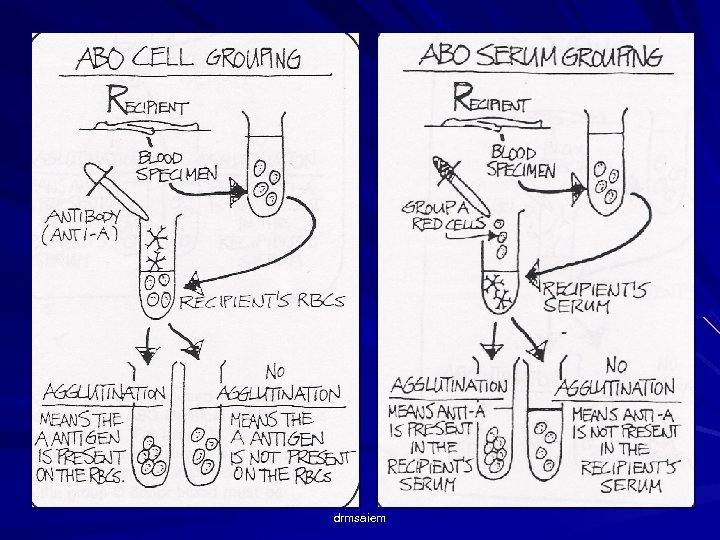 ABO CELL GROUPING
RECIPIENT
BLOOD
SPECIMEN
ANTIBODY
(ANTI-A)
RECIPIENT'S RBCS
AGGLUTINATION
MEANS THE
A ANTIGEN
IS PRESENT
ON THE RBCS.
NO
AGGLUTINATION
MEANS THE
A ANTIGEN
IS NOT PRESENT
ON THE RBCS
ABO SERUM GROUPING
RECIPIENT
BLOOD
SPECIMEN
GROUP A
RED CELLS
RECIPIENT'S
SERUM
AGGLUTINATION
MEANS ANTI-A
IS PRESENT
IN THE
RECIPIENT'S
SERUM
NO
AGGLUTINATION
MEANS ANTI-A
IS NOT PRESENT
IN THE
RECIPIENT'S
SERUM
drmsaiem